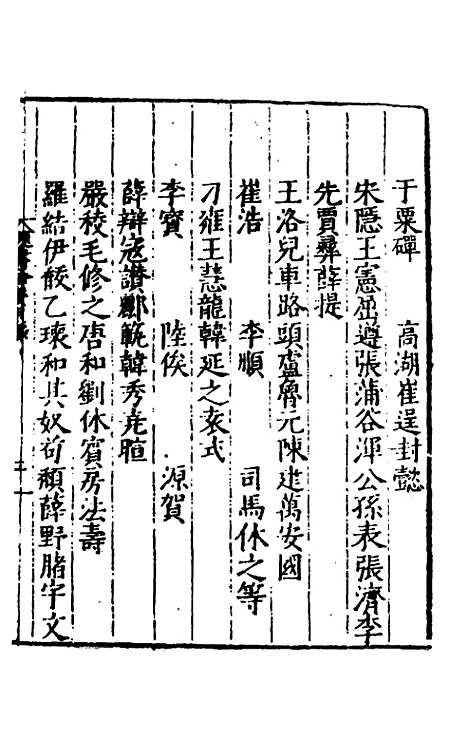 于栗磾　高湖崔逞封懿
宋隱王憲屈遵張蒲谷渾公孫表張濟李
先賈彝薛提
王洛兒車路頭盧魯元陳建萬安國
崔浩　李順　司馬休之等
刁雍王慧龍韓延之袁式
李寶　陸俟　源賀
薛辯寇讚酈範韓秀堯暄
嚴稜毛修之唐和劉休賓房法壽
羅結伊馛乙瓌和其奴苟頹薛野䐗宇文